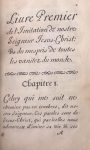 Livre Premier
de l'Imitation de nostre
Seigneur Jesus-Christ;
Et du mespris de toutes
les vanitez du monde.
Chapitre 1.
Celuy qui me suit ne
chemine pas en tenebres, dit no-
stre Seigneur. Ces paroles sont de
Jesus-Christ, par lesquelles